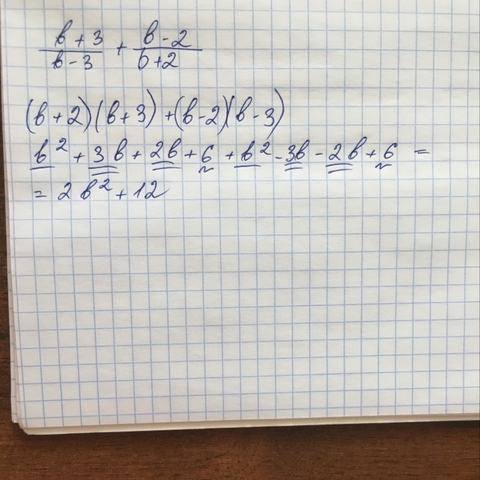 (b + 3)/(b - 3) + (b - 2)/(b + 2)
(b + 2)(b + 3) + (b - 2)(b - 3)
b² + 3b + 2b + 6 + b² - 3b - 2b + 6 =
= 2b² + 12